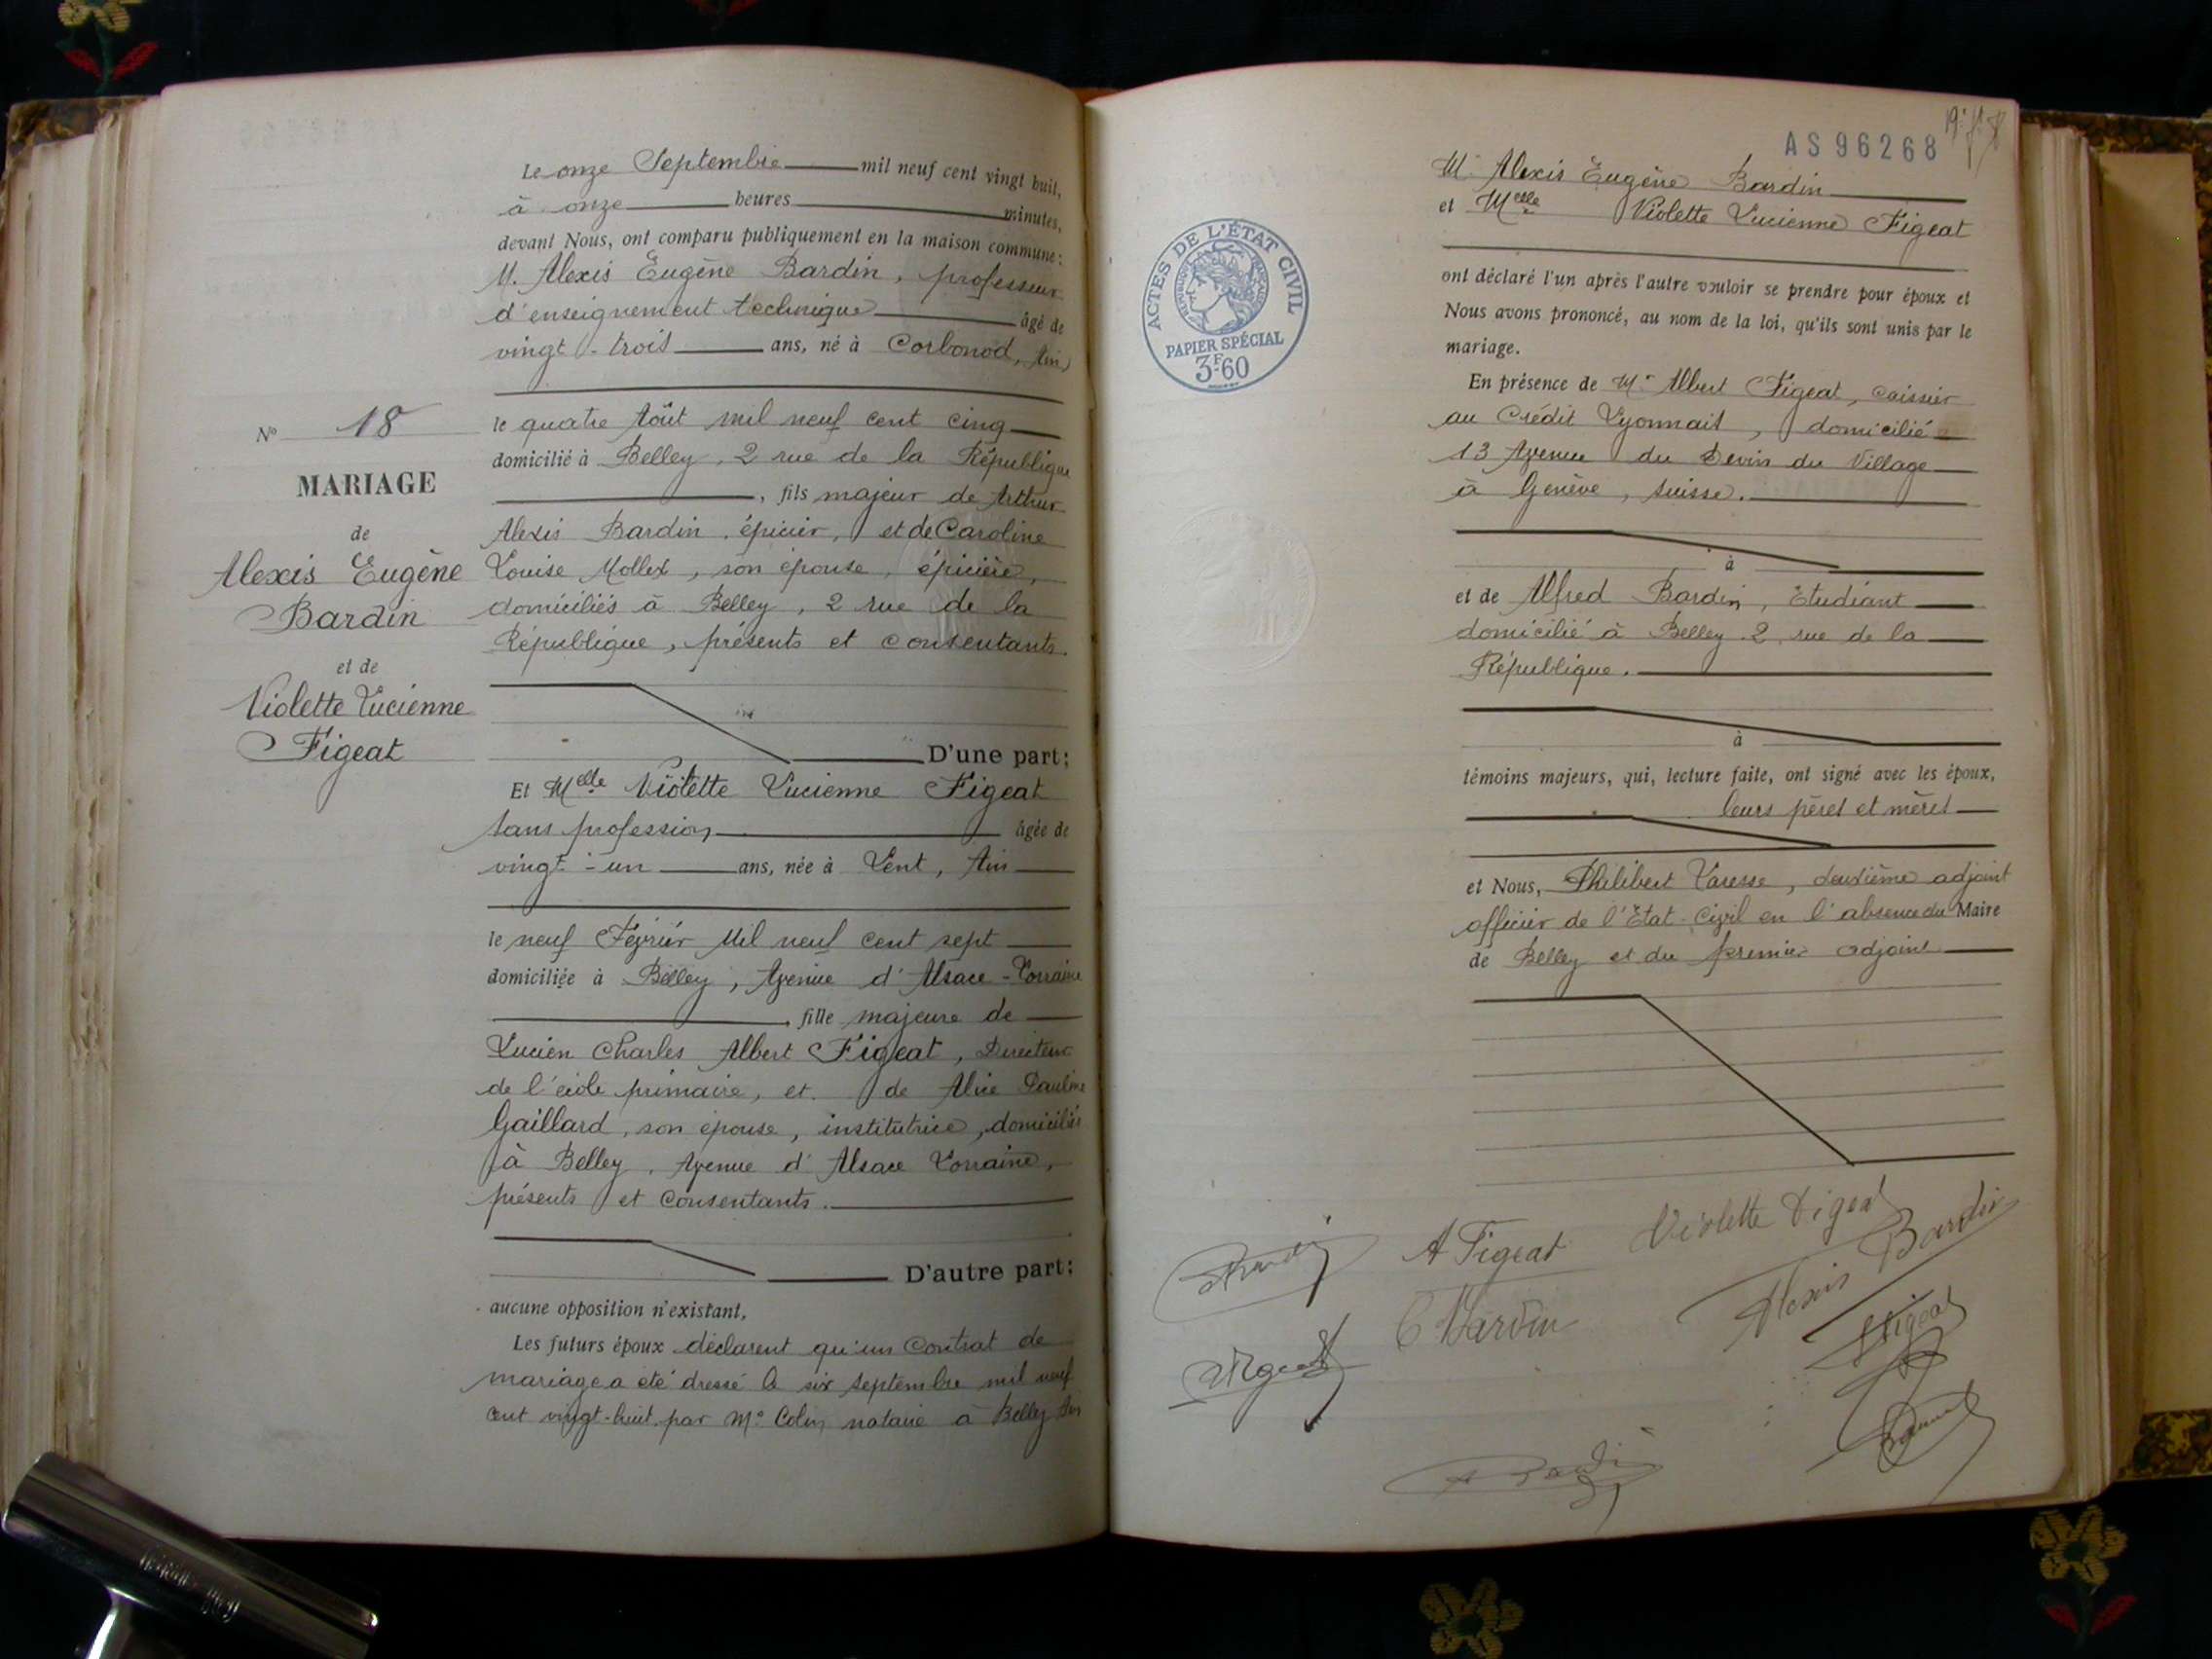 Le onze Septembre mil neuf cent vingt huit,
à onze heures minutes,
devant Nous, ont comparu publiquement en la maison commune:
M. Alexis Eugène Bardin, professeur
d'enseignement technique âgé de
vingt-trois ans, né à Corbonod, Ain
No 18
le quatre Août mil neuf cent cinq
domicilié à Belley, 2 rue de la République
, fils majeur de Arthur
Alexis Bardin, épicier, et de Caroline
Louise Mollex, son épouse, épicière,
domiciliés à Belley, 2 rue de la
République, présents et consentants.
MARIAGE
de
Alexis Eugène
Bardin
et de
Violette Lucienne
Figeat
D'une part;
Et Melle Violette Lucienne Figeat
sans profession âgée de
vingt-un ans, née à Lent, Ain
le neuf Février Mil neuf cent sept
domiciliée à Belley, Avenue d'Alsace-Lorraine
, fille majeure de
Lucien Charles Albert Figeat, Directeur
de l'école primaire, et de Alice Pauline
Gaillard, son épouse, institutrice, domiciliés
à Belley, Avenue d'Alsace Lorraine,
présents et consentants.
D'autre part;
aucune opposition n'existant,
Les futurs époux déclarent qu'un Contrat de
mariage a été dressé le six Septembre mil neuf
cent vingt-huit par Me notaire à Belley Ain
AS 96268
M. Alexis Eugène Bardin
et Melle Violette Lucienne Figeat
ACTES DE L'ÉTAT CIVIL
RÉPUBLIQUE FRANÇAISE
PAPIER SPÉCIAL
3F60
ont déclaré l'un après l'autre vouloir se prendre pour époux et
Nous avons prononcé, au nom de la loi, qu'ils sont unis par le
mariage.
En présence de Mr Albert Figeat, caissier
au Crédit Lyonnais, domicilié
13 Avenue du Devin du Village
à Genève, Suisse.
à
et de Alfred Bardin, Etudiant
domicilié à Belley 2, rue de la
République.
à
témoins majeurs, qui, lecture faite, ont signé avec les époux,
leurs pères et mères
et Nous, Philibert Varesse, deuxième adjoint
officier de l'Etat-Civil en l'absence du Maire
de Belley et du premier adjoint
A Figeat
Violette Figeat
Alexis Bardin
C Bardin
Figeat
Figeat
A Bardin